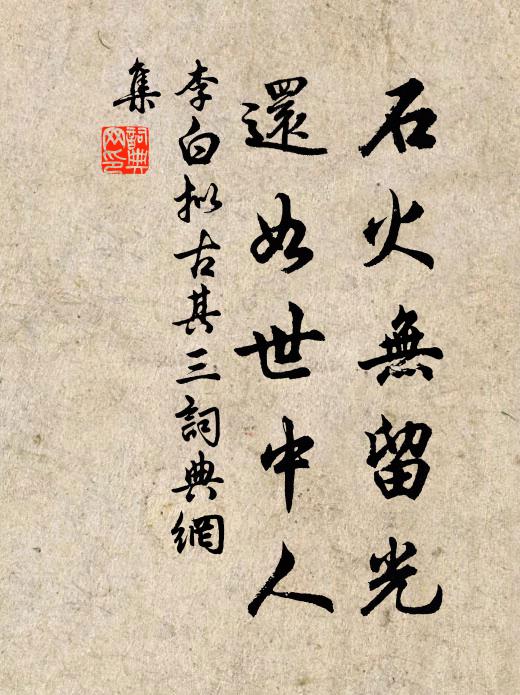 石火無留光
還如世中人
李白拟古其三詞典網
集
詞典網印